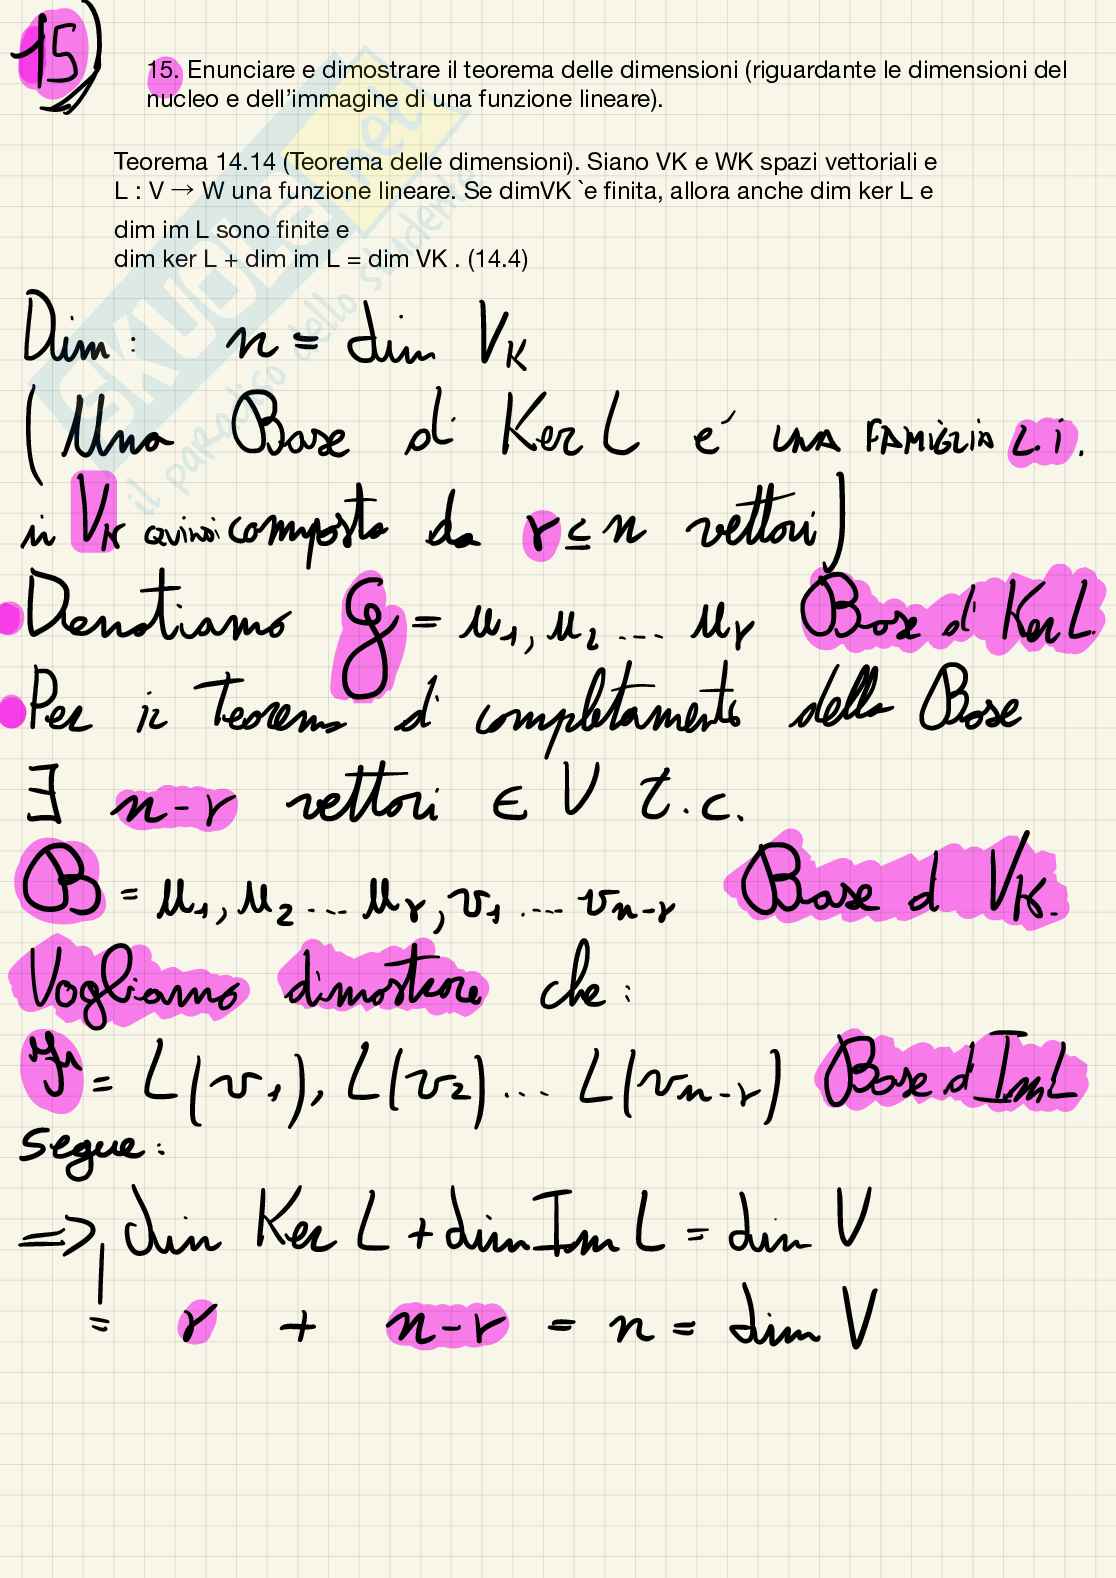 15)
15. Enunciare e dimostrare il teorema delle dimensioni (riguardante le dimensioni del
nucleo e dell'immagine di una funzione lineare).
Teorema 14.14 (Teorema delle dimensioni). Siano VK e WK spazi vettoriali e
L : V → W una funzione lineare. Se dimVK `e finita, allora anche dim ker L e
dim im L sono finite e
dim ker L + dim im L = dim VK . (14.4)
SKUOLA.net
il paradiso dello studente
Dim: n = dim V_K
(Una Base di Ker L e' UNA FAMIGLIA L.i.
in V_K quindi composta da r ≤ n vettori)
Denotiamo G = u_1, u_2 ... u_r Base di Ker L.
Per il Teorema di completamento della Base
∃ n-r vettori ∈ V t.c.
B = u_1, u_2 ... u_r, v_1 ... v_{n-r} Base di V_K.
Vogliamo dimostrare che:
= L(v_1), L(v_2) ... L(v_{n-r}) Base di Im L
segue:
=> dim Ker L + dim Im L = dim V
= r + n-r = n = dim V